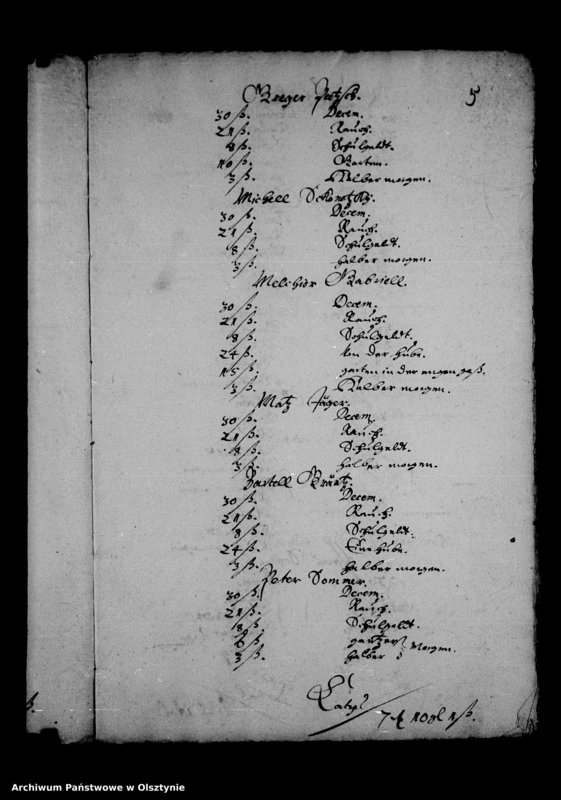 5
Greger
30 ß. Decem.
21 ß. Rauch.
8 ß. Schulgeldt.
10 ß. Garten.
3 ß. Halber morgen.
Michell
30 ß. Decem.
21 ß. Rauch.
8 ß. Schulgeldt.
3 ß. halber morgen.
Melchior Gabriell.
30 ß. Decem.
21 ß. Rauch.
8 ß. Schulgeldt.
24 ß. Von der hube.
15 ß. garten in der engen gaß.
3 ß. Halber morgen.
Matz Jäger.
30 ß. Decem.
21 ß. Rauch.
8 ß. Schulgeldt.
3 ß. halber morgen.
Bartell
30 ß. Decem.
21 ß. Rauch.
8 ß. Schulgeldt.
24 ß. Eine hube.
3 ß. halber morgen.
Peter Sommer.
30 ß. Decem.
21 ß. Rauch.
8 ß. Schulgeldt.
6 ß. gantzer
3 ß. halber Morgen.
Latus
ß.
Archiwum Państwowe w Olsztynie